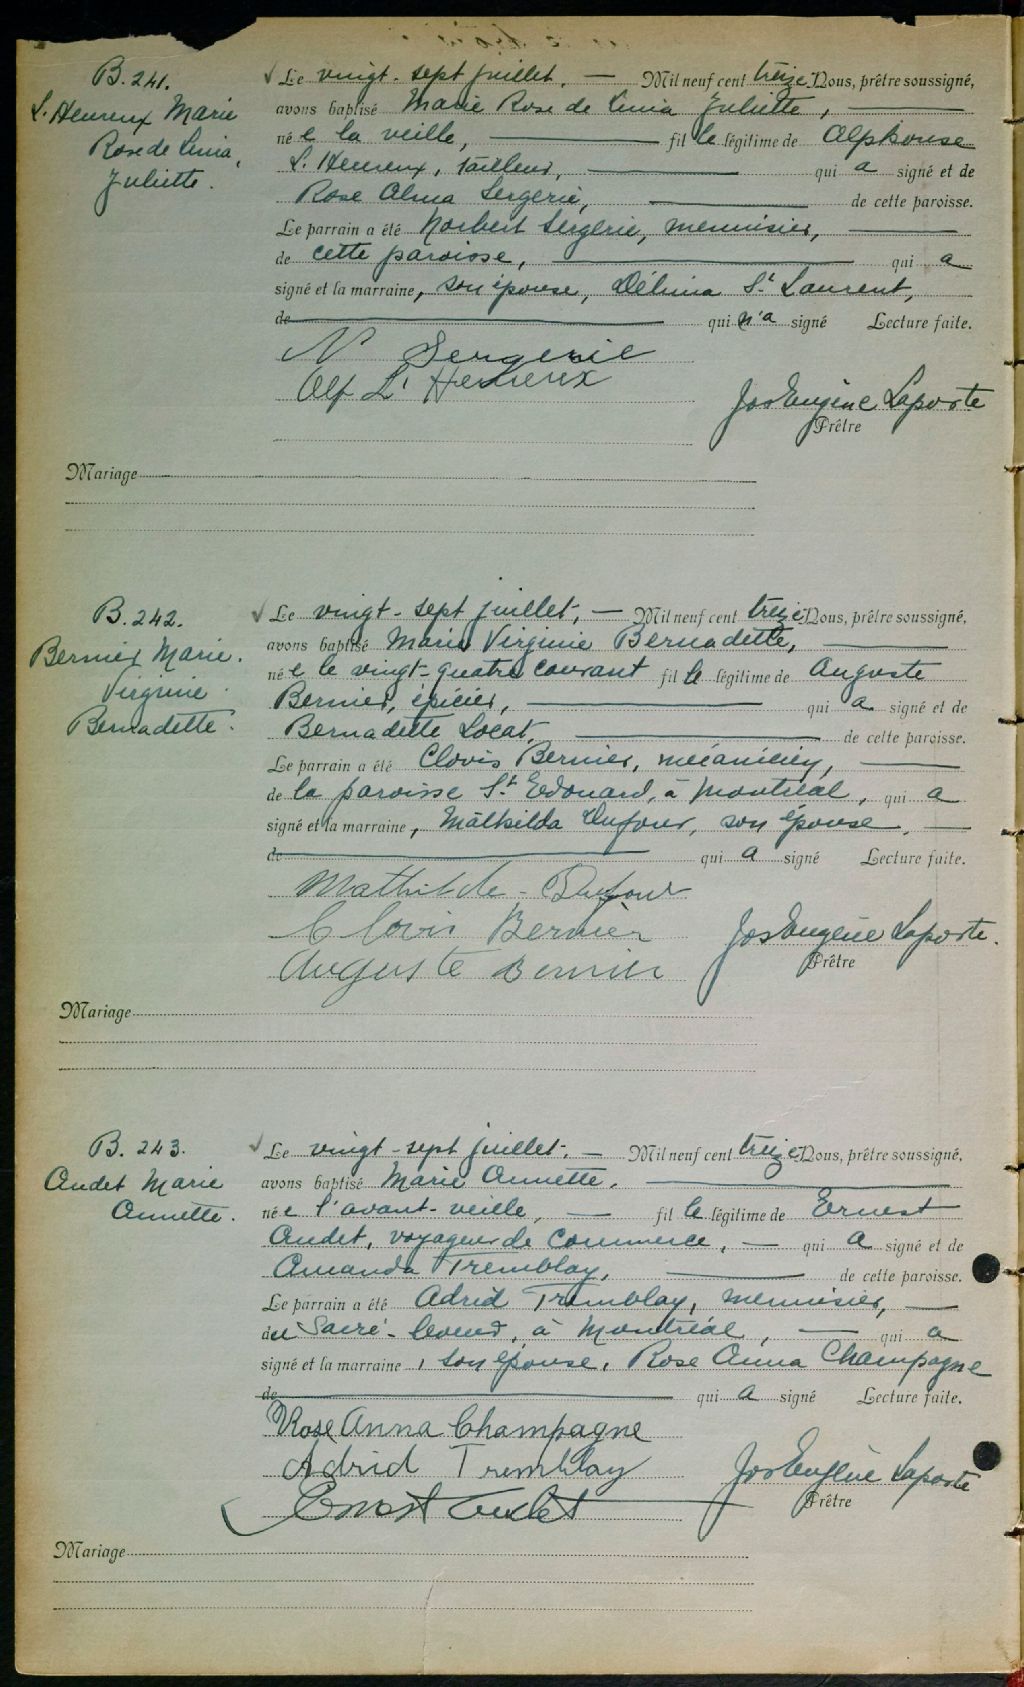 B. 241.
L'Heureux Marie
Rose de Lima,
Juliette.
Le vingt-sept juillet, — Mil neuf cent treize Nous, prêtre soussigné,
avons baptisé Marie Rose de Lima Juliette,
né e la veille, fil le légitime de Alphonse
L'Heureux, tailleur, qui a signé et de
Rose Alma Sergerie, de cette paroisse.
Le parrain a été Norbert Sergerie, menuisier,
de cette paroisse, qui a
signé et la marraine, son épouse, Délima St Laurent,
de qui n'a signé Lecture faite.
N Sergerie
Alf L'Heureux
Jos Eugène Laporte
Prêtre
Mariage
B. 242.
Bernier Marie.
Virginie
Bernadette.
Le vingt-sept juillet, — Mil neuf cent treize Nous, prêtre soussigné,
avons baptisé Marie Virginie Bernadette,
né e le vingt-quatre courant fil le légitime de Auguste
Bernier, épicier, qui a signé et de
Bernadette Locat, de cette paroisse.
Le parrain a été Clovis Bernier, mécanicien,
de la paroisse St Edouard, à Montréal, qui a
signé et la marraine, Mathilda Dufour, son épouse,
de qui a signé Lecture faite.
Mathilde - Dufour
Clovis Bernier
Auguste Bernier
Jos Eugène Laporte.
Prêtre
Mariage
B. 243.
Audet Marie
Annette.
Le vingt-sept juillet, — Mil neuf cent treize Nous, prêtre soussigné,
avons baptisé Marie Annette,
né e l'avant-veille, — fil le légitime de Ernest
Audet, voyageur de Commerce, — qui a signé et de
Amanda Tremblay, de cette paroisse.
Le parrain a été Adrid Tremblay, menuisier,
du Sacré-Coeur, à Montréal, — qui a
signé et la marraine, son épouse, Rose Anna Champagne
de qui a signé Lecture faite.
Rose Anna Champagne
Adrid Tremblay
Ernest Audet
Jos Eugène Laporte
Prêtre
Mariage